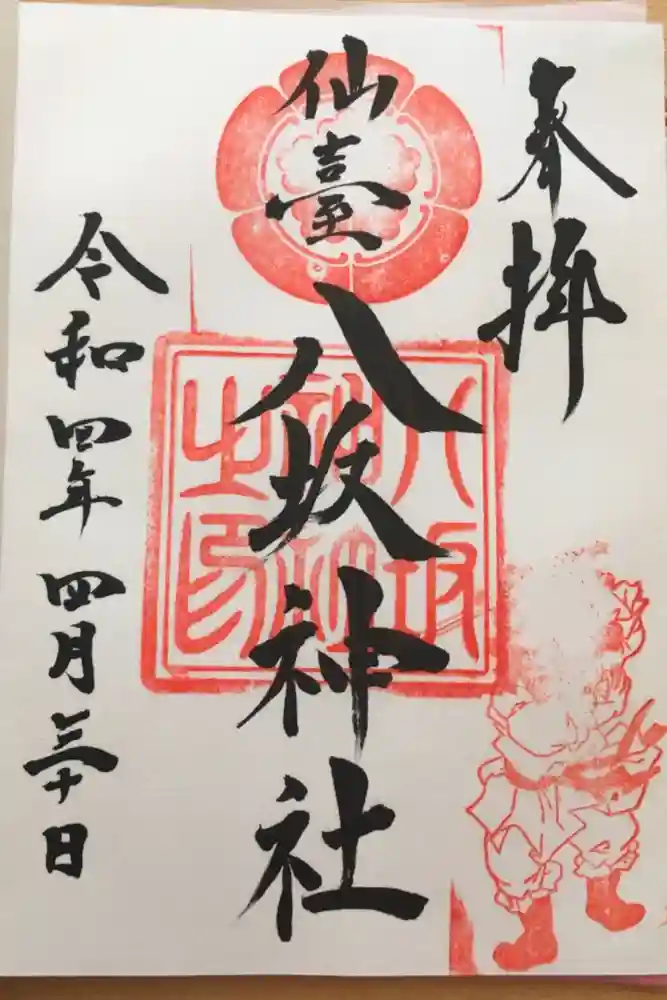 奉拝
仙臺
八坂神社
八坂神社之印
令和四年四月三十日